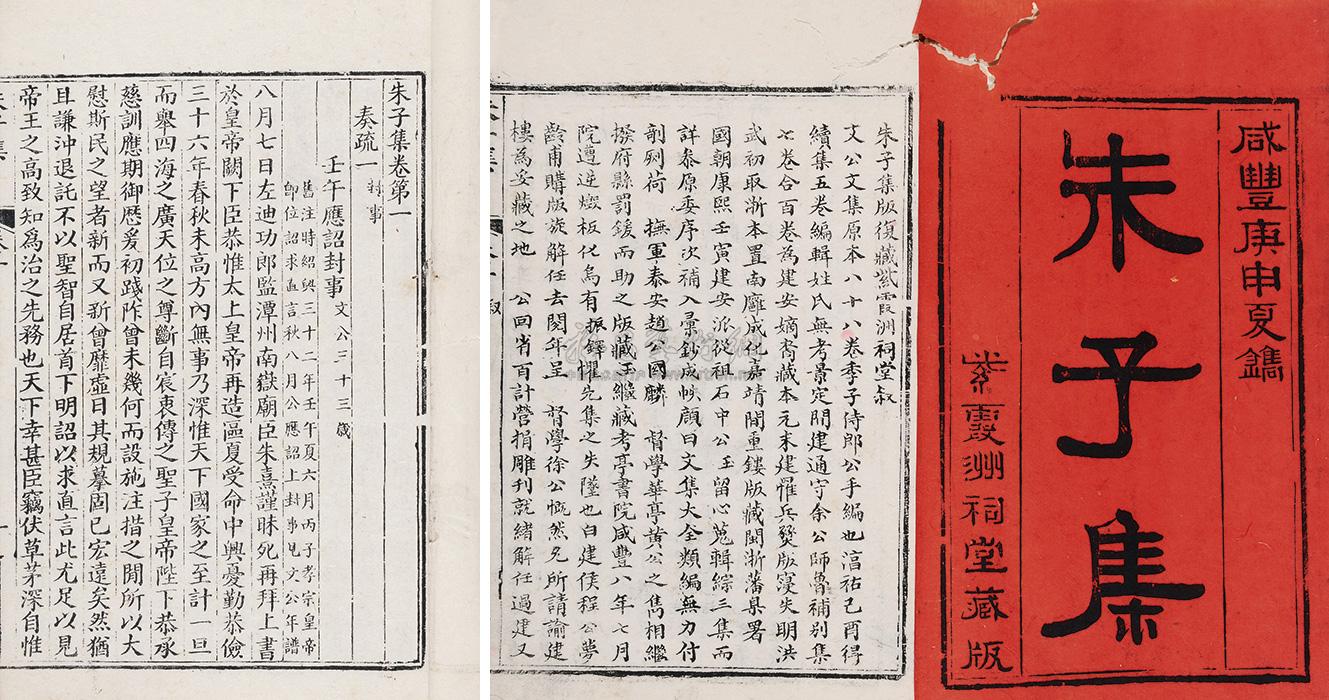 咸豐庚申夏鐫
朱子集
紫霞洲祠堂藏版
朱子集版復藏紫霞洲祠堂叙
文公文集原本八十八卷季子侍郎公手編也淳祐己酉得
續集五卷編輯姓氏無考景定間建通守余公師魯補別集
七卷合百卷為建安嫡裔藏本元末建罹兵燹版寖失明洪
武初取浙本置南雍成化嘉靖間重鋟版藏閩浙藩臬署
國朝康熙壬寅建安派從祖石中公玉留心蒐輯綜三集而
詳泰原委序次補入彙鈔成帙顏曰文集大全類編無力付
剞劂荷 撫軍泰安趙公國麟 督學華亭黄公之雋相繼
撥府縣罰鍰而助之版藏玉繼藏考亭書院咸豐八年七月
院遭逆燬板化烏有振鐸懼先集之失墜也白建侯程公夢
齡甫購版旋解任去閱年呈 督學徐公慨然允所請諭建
樓為妥藏之地 公回省百計營捐雕刊就緒解任過建又
朱子集卷第一
奏疏一 封事
壬午應詔封事 文公三十三歲
舊注時紹興三十二年壬午夏六月丙子孝宗皇帝
即位詔求直言秋八月公應詔上封事見文公年譜
八月七日左迪功郎監潭州南嶽廟臣朱熹謹昧死再拜上書
於皇帝闕下臣恭惟太上皇帝再造區夏受命中興憂勤恭儉
三十六年春秋未高方內無事乃深惟天下國家之至計一旦
而舉四海之廣天位之尊斷自宸衷傳之聖子皇帝陛下恭承
慈訓應期御歷爰初踐阼曾未幾何而設施注措之閒所以大
慰斯民之望者新而又新曾靡虛日其規摹固已宏遠矣然猶
且謙沖退託不以聖智自居首下明詔以求直言此尤足以見
帝王之高致知爲治之先務也天下幸甚臣竊伏草茅深自惟